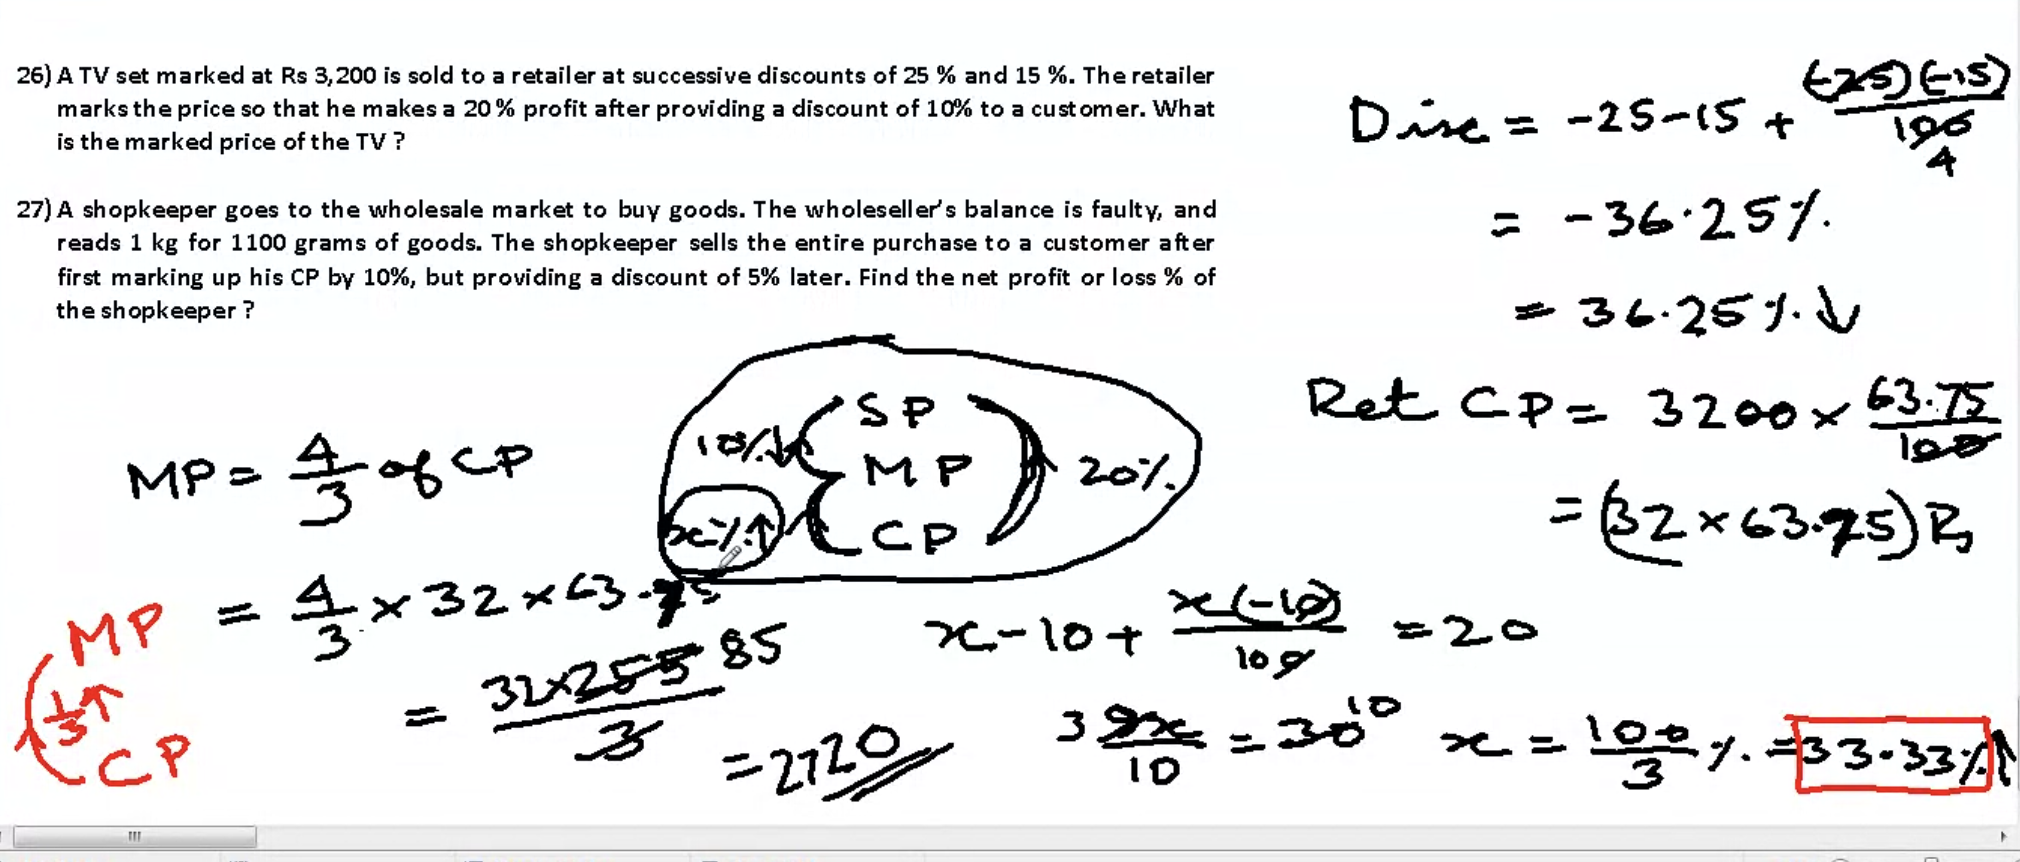 26) A TV set marked at Rs 3,200 is sold to a retailer at successive discounts of 25 % and 15 %. The retailer
marks the price so that he makes a 20% profit after providing a discount of 10% to a customer. What
is the marked price of the TV ?
27) A shopkeeper goes to the wholesale market to buy goods. The wholeseller's balance is faulty, and
reads 1 kg for 1100 grams of goods. The shopkeeper sells the entire purchase to a customer after
first marking up his CP by 10%, but providing a discount of 5% later. Find the net profit or loss % of
the shopkeeper ?
Disc = -25-15 + (-25)(-15)/100 4
= -36.25%.
= 36.25%.↓
Ret CP = 3200 × 63.75/100
= (32 × 63.75) Rs
SP
10%↓ MP 20%.
x%↑ CP
MP = 4/3 of CP
= 4/3 × 32 × 63.75
= 32×255/3 85
= 2720
MP
1/3↑
CP
x-10+ x(-10)/100 = 20
3 9x/10 = 30 10
x = 100/3 %. = 33.33%↑